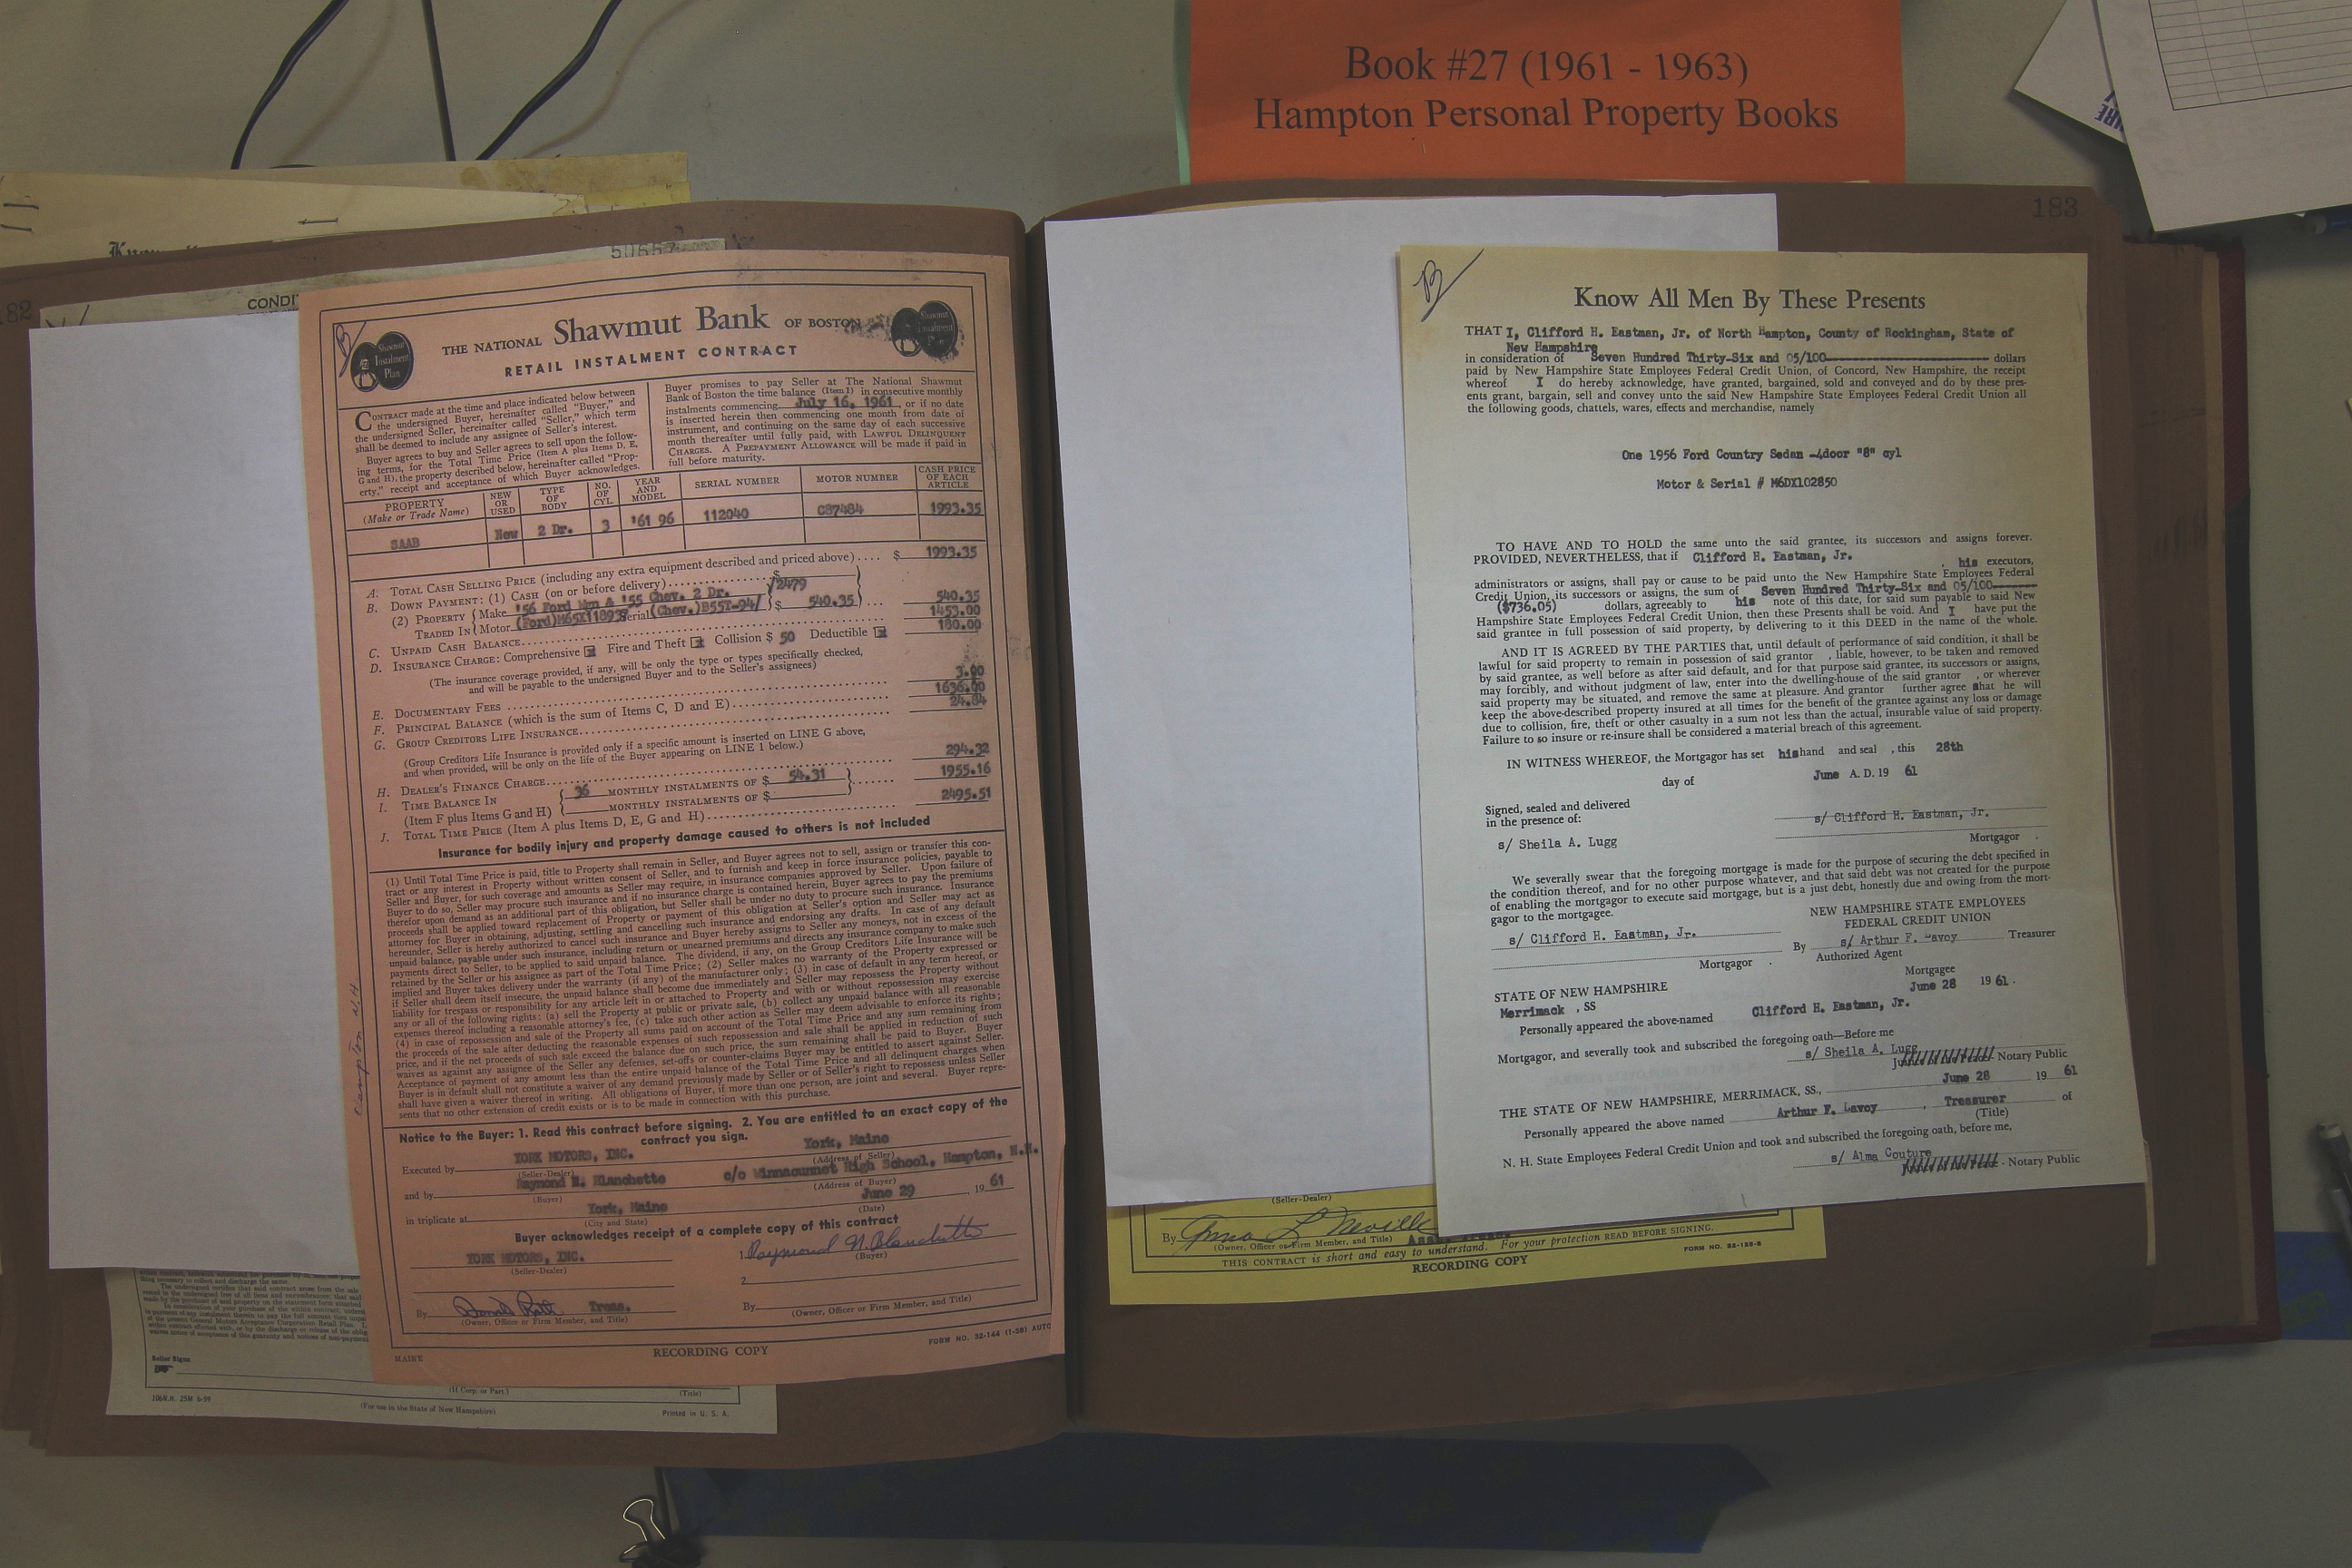 Book #27 (1961 - 1963)
Hampton Personal Property Books
182
50657
CONDI
THE NATIONAL Shawmut Bank OF BOSTON
RETAIL INSTALMENT CONTRACT
Shawmut Instalment Plan
CONTRACT made at the time and place indicated below between
the undersigned Buyer, hereinafter called "Buyer," and
the undersigned Seller, hereinafter called "Seller," which term
shall be deemed to include any assignee of Seller's interest.
Buyer agrees to buy and Seller agrees to sell upon the follow-
ing terms, for the Total Time Price (Item A plus Items D, E,
G and H), the property described below, hereinafter called "Prop-
erty," receipt and acceptance of which Buyer acknowledges.
Buyer promises to pay Seller at The National Shawmut
Bank of Boston the time balance (Item I) in consecutive monthly
instalments commencing July 16, 1961, or if no date
is inserted herein then commencing one month from date of
instrument, and continuing on the same day of each successive
month thereafter until fully paid, with LAWFUL DELINQUENT
CHARGES. A PREPAYMENT ALLOWANCE will be made if paid in
full before maturity.
PROPERTY (Make or Trade Name) NEW OR USED TYPE OF BODY NO. OF CYL. YEAR AND MODEL SERIAL NUMBER MOTOR NUMBER CASH PRICE OF EACH ARTICLE
SAAB New 2 Dr. 3 '61 96 112040 C87484 1993.35
A. TOTAL CASH SELLING PRICE (including any extra equipment described and priced above).... $ 1993.35
B. DOWN PAYMENT: (1) CASH (on or before delivery)........ $
(2) PROPERTY TRADED IN Make '56 Ford Wgn & '55 Chev. 2 Dr. $ 540.35 ... 540.35
Motor (Ford) Serial (Chev.)
C. UNPAID CASH BALANCE........ 1453.00
D. INSURANCE CHARGE: Comprehensive Fire and Theft Collision $ 50 Deductible 180.00
(The insurance coverage provided, if any, will be only the type or types specifically checked,
and will be payable to the undersigned Buyer and to the Seller's assignees)
E. DOCUMENTARY FEES ........ 3.00
F. PRINCIPAL BALANCE (which is the sum of Items C, D and E)........ 1636.00
G. GROUP CREDITORS LIFE INSURANCE........ 24.84
(Group Creditors Life Insurance is provided only if a specific amount is inserted on LINE G above,
and when provided, will be only on the life of the Buyer appearing on LINE 1 below.)
H. DEALER'S FINANCE CHARGE........ 294.32
I. TIME BALANCE IN 36 MONTHLY INSTALMENTS OF $ 54.31 ...... 1955.16
(Item F plus Items G and H) MONTHLY INSTALMENTS OF $
J. TOTAL TIME PRICE (Item A plus Items D, E, G and H)........ 2495.51
Insurance for bodily injury and property damage caused to others is not included
(1) Until Total Time Price is paid, title to Property shall remain in Seller, and Buyer agrees not to sell, assign or transfer this con-
tract or any interest in Property without written consent of Seller, and to furnish and keep in force insurance policies, payable to
Seller and Buyer, for such coverage and amounts as Seller may require, in insurance companies approved by Seller. Upon failure of
Buyer to do so, Seller may procure such insurance and if no insurance charge is contained herein, Buyer agrees to pay the premiums
therefor upon demand as an additional part of this obligation, but Seller shall be under no duty to procure such insurance. Insurance
proceeds shall be applied toward replacement of Property or payment of this obligation at Seller's option and Seller may act as
attorney for Buyer in obtaining, adjusting, settling and cancelling such insurance and endorsing any drafts. In case of any default
hereunder, Seller is hereby authorized to cancel such insurance and Buyer hereby assigns to Seller any moneys, not in excess of the
unpaid balance, payable under such insurance, including return or unearned premiums and directs any insurance company to make such
payments direct to Seller, to be applied to said unpaid balance. The dividend, if any, on the Group Creditors Life Insurance will be
retained by the Seller or his assignee as part of the Total Time Price; (2) Seller makes no warranty of the Property expressed or
implied and Buyer takes delivery under the warranty (if any) of the manufacturer only; (3) in case of default in any term hereof, or
if Seller shall deem itself insecure, the unpaid balance shall become due immediately and Seller may repossess the Property without
liability for trespass or responsibility for any article left in or attached to Property and with or without repossession may exercise
any or all of the following rights: (a) sell the Property at public or private sale, (b) collect any unpaid balance with all reasonable
expenses thereof including a reasonable attorney's fee, (c) take such other action as Seller may deem advisable to enforce its rights;
(4) in case of repossession and sale of the Property all sums paid on account of the Total Time Price and any sum remaining from
the proceeds of the sale after deducting the reasonable expenses of such repossession and sale shall be applied in reduction of such
price, and if the net proceeds of such sale exceed the balance due on such price, the sum remaining shall be paid to Buyer. Buyer
waives as against any assignee of the Seller any defenses, set-offs or counter-claims Buyer may be entitled to assert against Seller.
Acceptance of payment of any amount less than the entire unpaid balance of the Total Time Price and all delinquent charges when
Buyer is in default shall not constitute a waiver of any demand previously made by Seller or of Seller's right to repossess unless Seller
shall have given a waiver thereof in writing. All obligations of Buyer, if more than one person, are joint and several. Buyer repre-
sents that no other extension of credit exists or is to be made in connection with this purchase.
Notice to the Buyer: 1. Read this contract before signing. 2. You are entitled to an exact copy of the
contract you sign.
Executed by YORK MOTORS, INC. York, Maine
(Seller-Dealer) (Address of Seller)
and by Raymond N. Blanchette c/o Winnacunnet High School, Hampton, N.H.
(Buyer) (Address of Buyer)
in triplicate at York, Maine June 29, 1961
(City and State) (Date)
Buyer acknowledges receipt of a complete copy of this contract
YORK MOTORS, INC. 1. Raymond N. Blanchette
(Seller-Dealer) (Buyer)
2.
By Treas. By
(Owner, Officer or Firm Member, and Title) (Owner, Officer or Firm Member, and Title)
MAINE RECORDING COPY FORM NO. 32-144 (1-58) AUTO
Hampton N.H.
Seller Signs
(If Corp. or Part.) (Title)
106N.H. 25M 6-59 (For use in the State of New Hampshire) Printed in U. S. A.
183
Know All Men By These Presents
THAT I, Clifford H. Eastman, Jr. of North Hampton, County of Rockingham, State of
New Hampshire
in consideration of Seven Hundred Thirty-Six and 05/100 dollars
paid by New Hampshire State Employees Federal Credit Union, of Concord, New Hampshire, the receipt
whereof I do hereby acknowledge, have granted, bargained, sold and conveyed and do by these pres-
ents grant, bargain, sell and convey unto the said New Hampshire State Employees Federal Credit Union all
the following goods, chattels, wares, effects and merchandise, namely
One 1956 Ford Country Sedan -4door "8" cyl
Motor & Serial # M6DX102850
TO HAVE AND TO HOLD the same unto the said grantee, its successors and assigns forever.
PROVIDED, NEVERTHELESS, that if Clifford H. Eastman, Jr.
, his executors,
administrators or assigns, shall pay or cause to be paid unto the New Hampshire State Employees Federal
Credit Union, its successors or assigns, the sum of Seven Hundred Thirty-Six and 05/100
($736.05) dollars, agreeably to his note of this date, for said sum payable to said New
Hampshire State Employees Federal Credit Union, then these Presents shall be void. And I have put the
said grantee in full possession of said property, by delivering to it this DEED in the name of the whole.
AND IT IS AGREED BY THE PARTIES that, until default of performance of said condition, it shall be
lawful for said property to remain in possession of said grantor , liable, however, to be taken and removed
by said grantee, as well before as after said default, and for that purpose said grantee, its successors or assigns,
may forcibly, and without judgment of law, enter into the dwelling-house of the said grantor , or wherever
said property may be situated, and remove the same at pleasure. And grantor further agree that he will
keep the above-described property insured at all times for the benefit of the grantee against any loss or damage
due to collision, fire, theft or other casualty in a sum not less than the actual, insurable value of said property.
Failure to so insure or re-insure shall be considered a material breach of this agreement.
IN WITNESS WHEREOF, the Mortgagor has set his hand and seal , this 28th
day of June A. D. 19 61
Signed, sealed and delivered
in the presence of:
s/ Clifford H. Eastman, Jr.
s/ Sheila A. Lugg Mortgagor .
We severally swear that the foregoing mortgage is made for the purpose of securing the debt specified in
the condition thereof, and for no other purpose whatever, and that said debt was not created for the purpose
of enabling the mortgagor to execute said mortgage, but is a just debt, honestly due and owing from the mort-
gagor to the mortgagee.
NEW HAMPSHIRE STATE EMPLOYEES
FEDERAL CREDIT UNION
s/ Clifford H. Eastman, Jr. By s/ Arthur F. Lavoy Treasurer
Authorized Agent
Mortgagor . Mortgagee
STATE OF NEW HAMPSHIRE June 28 19 61.
Merrimack , SS
Personally appeared the above-named Clifford H. Eastman, Jr.
Mortgagor, and severally took and subscribed the foregoing oath—Before me
s/ Sheila A. Lugg
Justice of the Peace - Notary Public
THE STATE OF NEW HAMPSHIRE, MERRIMACK, SS., June 28 19 61
Personally appeared the above named Arthur F. Lavoy , Treasurer of
(Title)
N. H. State Employees Federal Credit Union and took and subscribed the foregoing oath, before me,
s/ Alma Couture
Justice of the Peace - Notary Public
(Seller-Dealer)
By Anna L Neville
(Owner, Officer or Firm Member, and Title)
THIS CONTRACT is short and easy to understand. For your protection READ BEFORE SIGNING.
RECORDING COPY